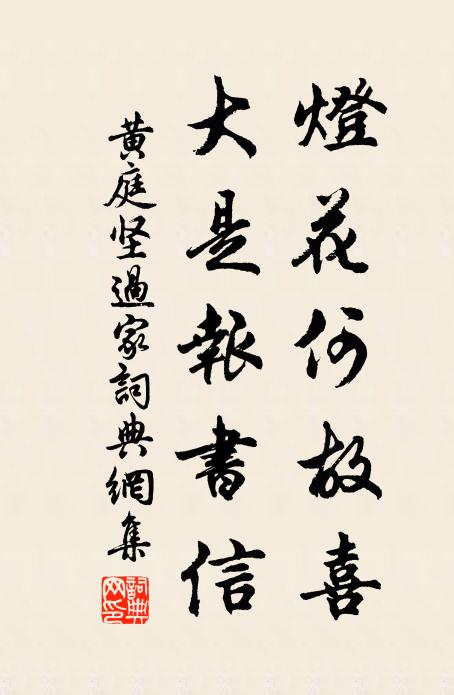 燈花何故喜
大是報書信
黄庭坚過家詞典網集
詞典网印